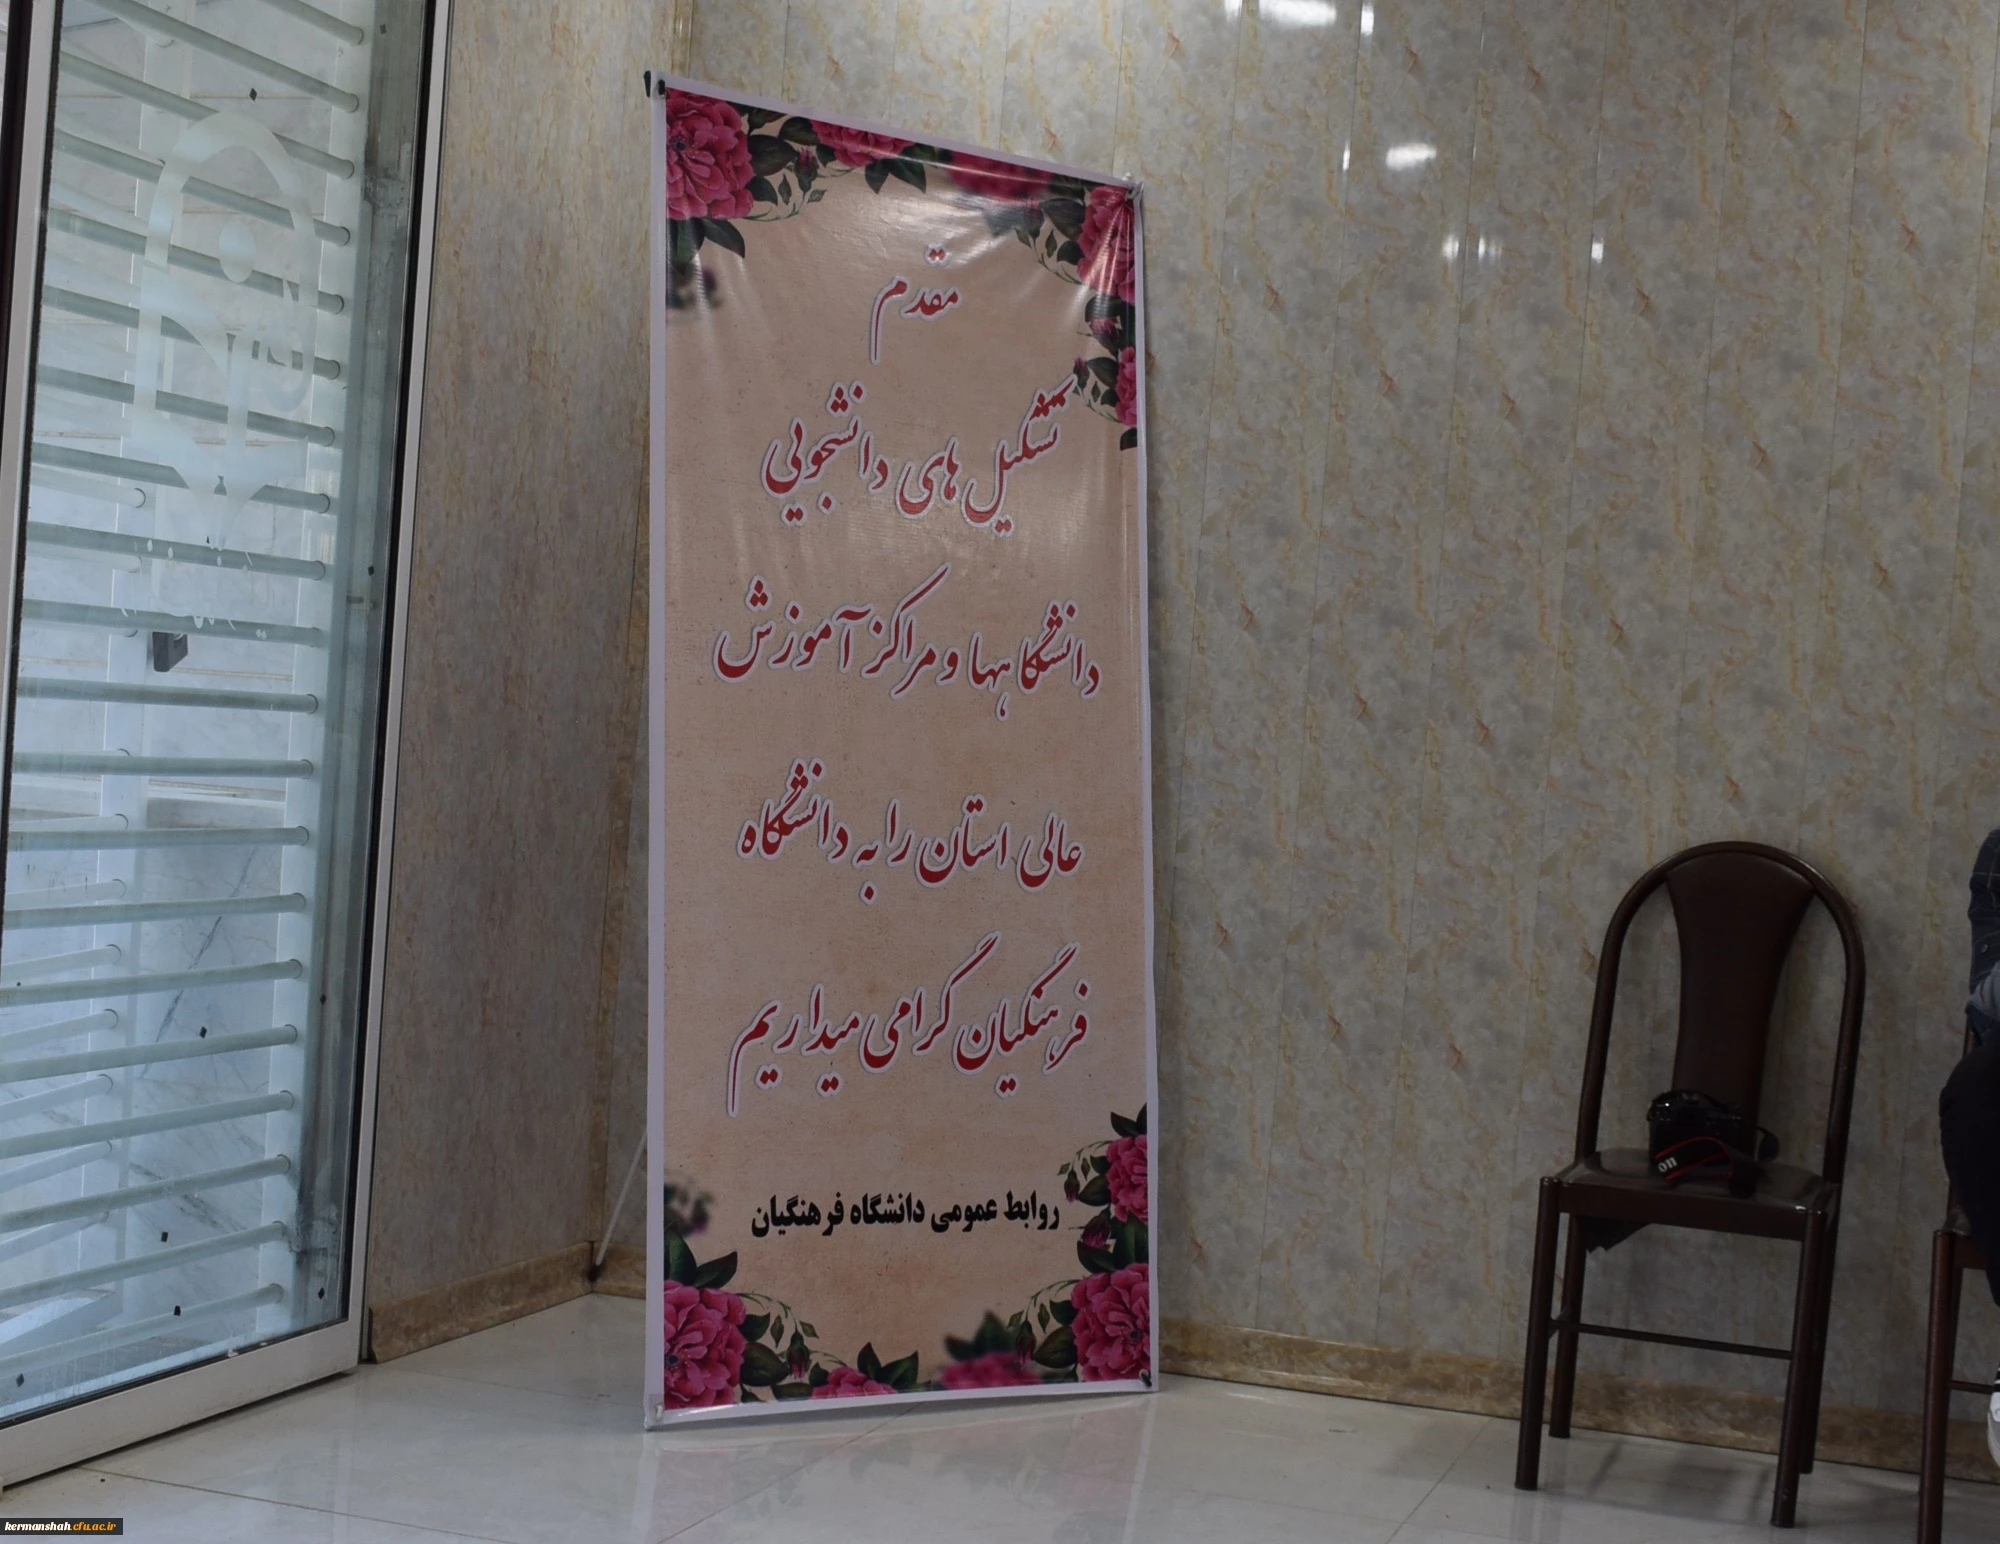 مقدم
تشکیل های دانشجویی
دانشگاهها و مراکز آموزش
عالی استان را به دانشگاه
فرهنگیان گرامی میداریم
روابط عمومی دانشگاه فرهنگیان
on
kermanshah.cfu.ac.ir